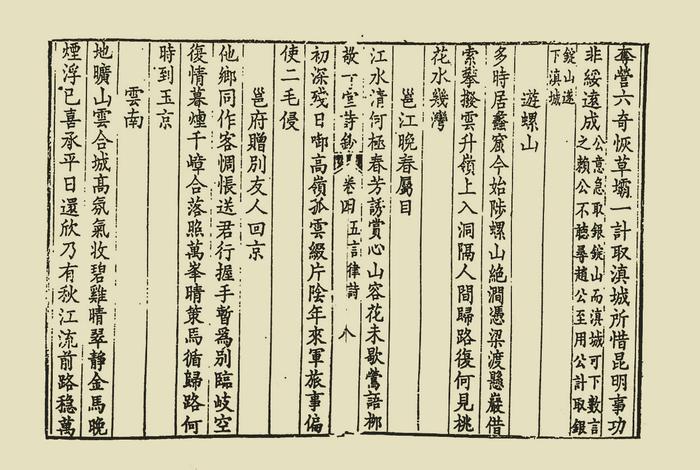 奪營六奇恢草壩一計取滇城所惜昆明事功
非綏遠成公意急取銀錠山而滇城可下數言
之賴公不聽尋趙公至用公計取銀
錠山遂
下滇城
遊螺山
多時居蠡窟今始陟螺山絶澗憑梁渡懸巖借
索攀撥雲升嶺上入洞隔人間歸路復何見桃
花水幾灣
邕江晚春屬目
江水清何極春芳誘賞心山容花未歇鶯語柳
敬一堂詩鈔 卷四 五言律詩
初深殘日啣高嶺孤雲綴片陰年來軍旅事偏
使二毛侵
邕府贈別友人回京
他鄉同作客惆悵送君行握手暫爲別臨岐空
復情暮煙千嶂合落照萬峯晴策馬循歸路何
時到玉京
雲南
地曠山雲合城高氛氣收碧雞晴翠靜金馬晚
煙浮已喜承平日還欣乃有秋江流前路穩萬